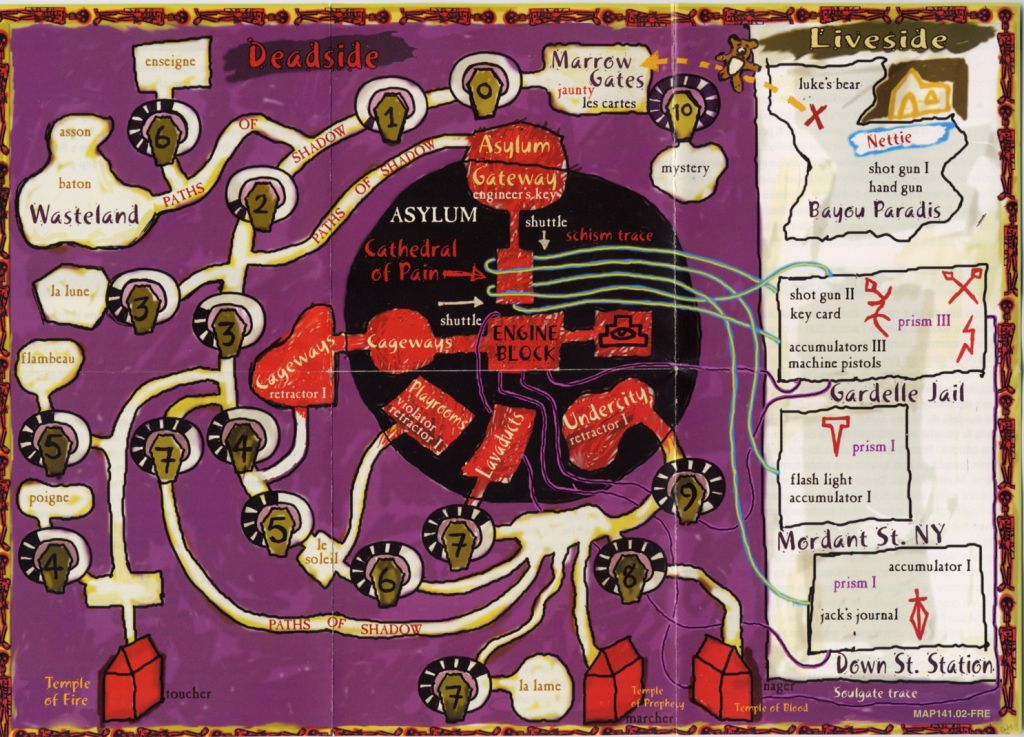 Deadside
Liveside
enseigne
6
OF
PATHS
SHADOW
1
0
Marrow
Gates
jaunty
les cartes
10
mystery
luke's bear
Nettie
shot gun I
hand gun
Bayou Paradis
asson
baton
Wasteland
2
PATHS OF SHADOW
Asylum
Gateway
engineer's key
ASYLUM
shuttle
schism trace
Cathedral
of Pain
shuttle
ENGINE
BLOCK
la lune
3
3
Cageways
retractor I
Cageways
Playrooms
violator
retractor I
Lavaducts
Undercity
retractor I
shot gun II
key card
prism III
accumulators III
machine pistols
Gardelle Jail
prism I
flash light
accumulator I
Mordant St. NY
accumulator I
prism I
jack's journal
Down St. Station
flambeau
5
7
4
poigne
4
5
le
soleil
6
7
9
8
PATHS OF SHADOW
Temple
of Fire
toucher
7
la lame
Temple
of Prophecy
marcher
nager
Temple of Blood
Soulgate trace
MAP141.02-FRE